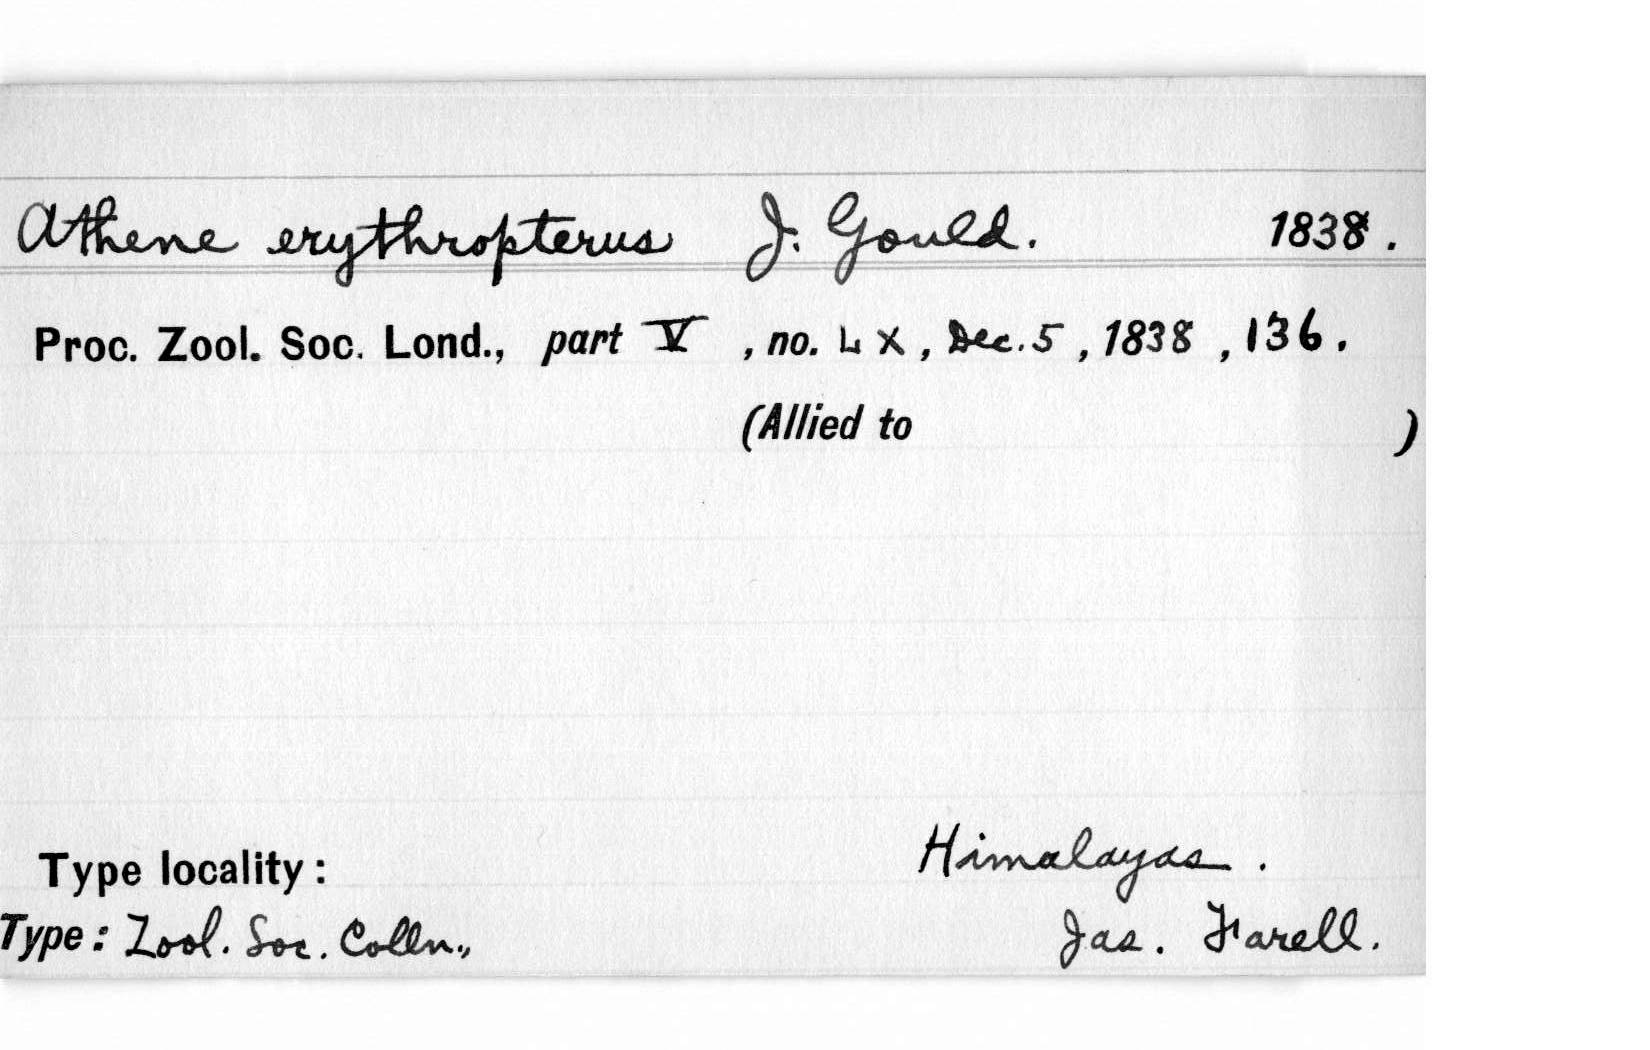 Athene erythropterus J. Gould. 1838.
Proc. Zool. Soc. Lond., part V, no. LX, Dec. 5, 1838, 136.
(Allied to )
Type locality: Himalayas.
Type: Zool. Soc. Colln., Jas. Farell.